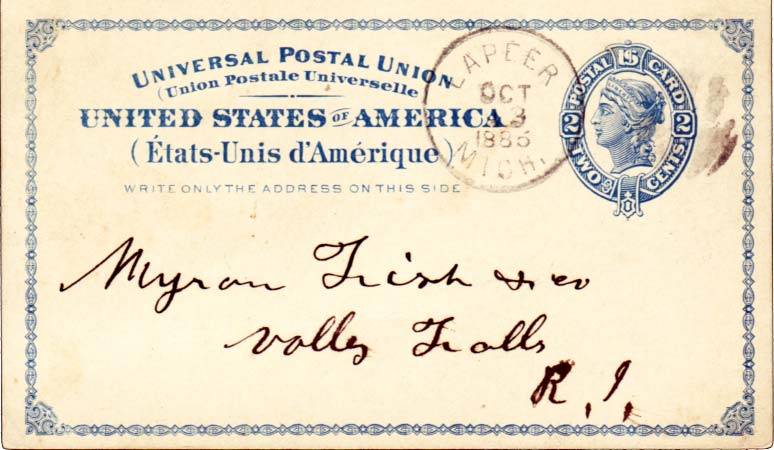 UNIVERSAL POSTAL UNION
(Union Postale Universelle
UNITED STATES OF AMERICA
(États-Unis d'Amérique)
WRITE ONLY THE ADDRESS ON THIS SIDE
LAPEER
OCT
3
188
MICH.
U.S.
POSTAL CARD
2 2
TWO CENTS
Myron Fish & co
Valley Falls
R. I.